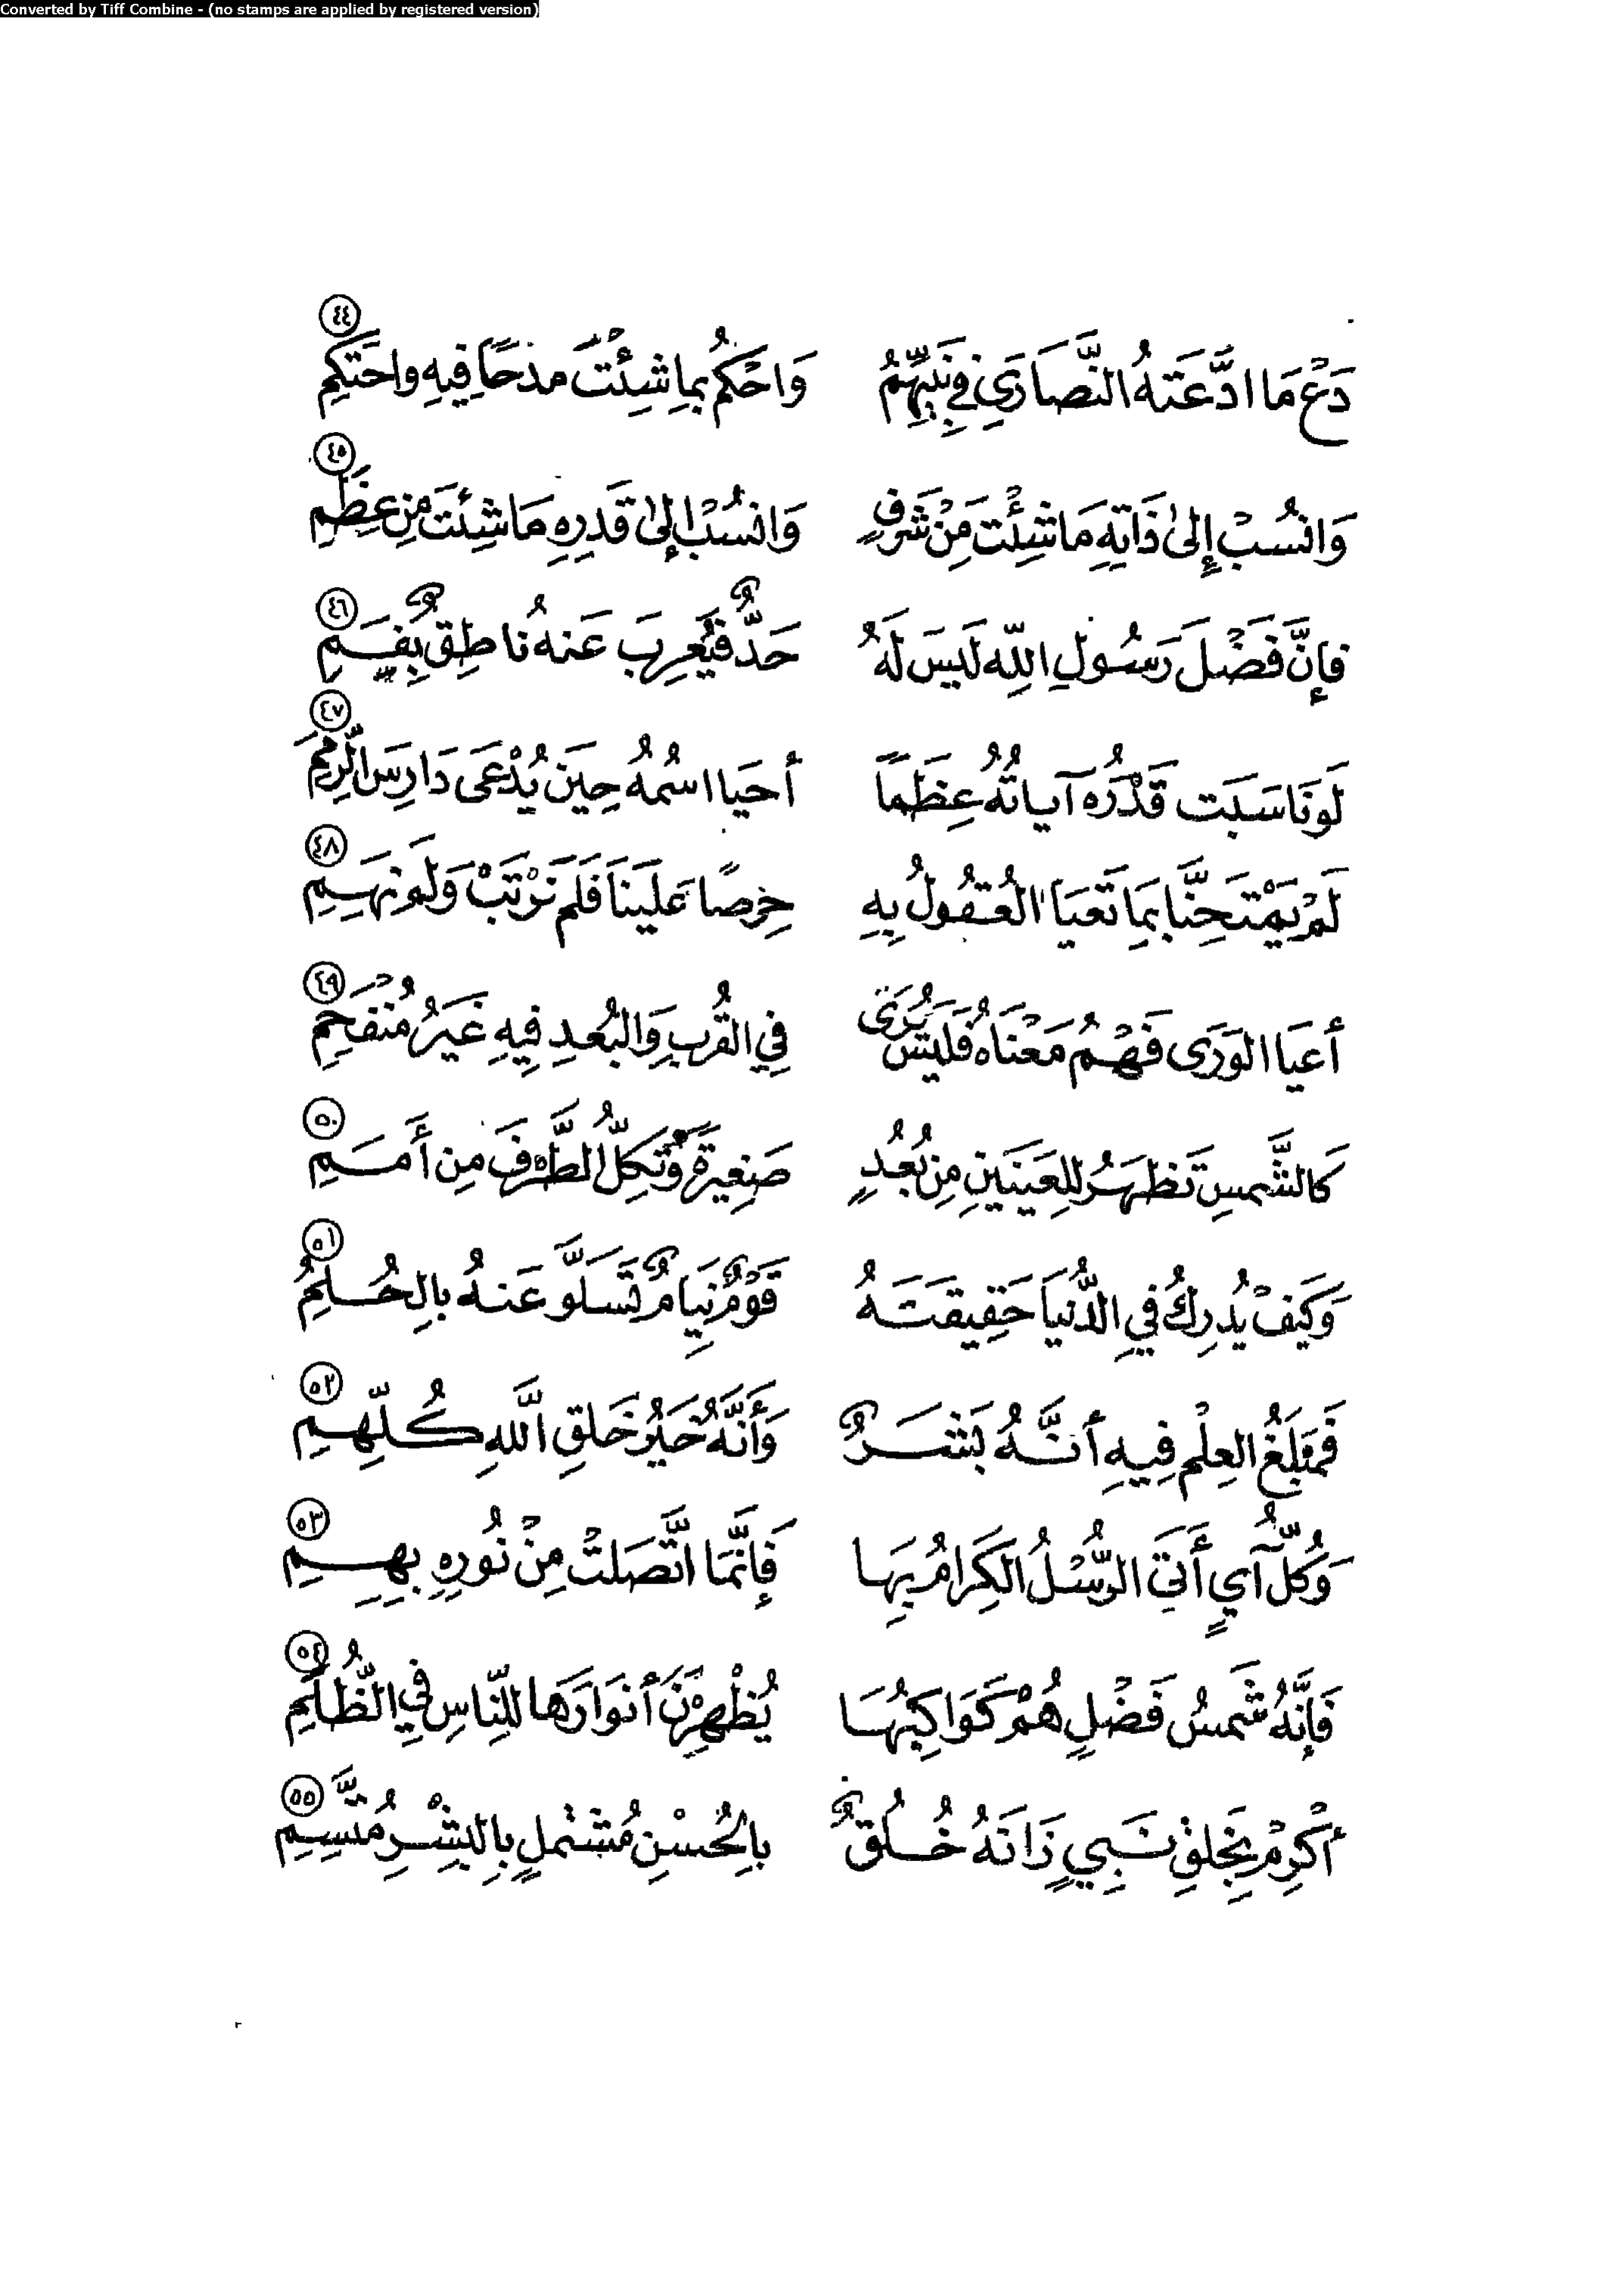 Converted by Tiff Combine - (no stamps are applied by registered version)
دَعْ مَا ادَّعَتهُ النَّصَارَي في نَبِيِّهِمُ وَاحْكُم بمِا شِئْتَ مَدحًا فِيهِ واحَتكِمِ ٤٤
وَانسُبْ إِلىٰ ذَاتِهِ مَا شِئْت مَنْ شَرفٍ وَانسُبْ إِلىٰ قَدرِهِ مَا شِئتَ مِن عِظَمِ ٤٥
فإنَّ فَضْلَ رَسُولِ اللّهِ لَيسَ لَهُ حَدٌّ فَيُعرِبَ عَنهُ نَاطِقٌ بِفَمِ ٤٦
لَو نَاسَبَت قَدْرَهُ آياتُهُ عِظَمًا أحيَا اسمُهُ حِيَن يُدْعَى دَارِسَ الرِّمَمِ ٤٧
لَمْ يَمْتَحِنَّا بمَا تَعيَا العُقُولُ بِهِ حِرصًا عَلَينَا فَلَم نَرْتَبْ وَلَم نَهِمِ ٤٨
أعيَا الوَرَى فَهْمُ مَعْنَاهُ فَلَيسَ يُرَى فِي القُربِ وَالبُعدِ فِيهِ غَيَرُ مُنْفَحِمِ ٤٩
كَالشَّمسِ تَظهَرُ لِلعَينَينِ مِن بُعُدٍ صَغِيرةً وَتُكِلُّ الطَّرفَ مِن أَمَمِ ٥٠
وَكَيفَ يُدرِكُ فِي الدُّنيَا حَقِيقَتَهُ قَوْمٌ نِيَامٌ تَسَلَّو عَنهُ بالِحُلمِ ٥١
فَمَبلَغُ العِلْمِ فِيهِ أنَّهُ بَشَرٌ وَأنَّهُ خَيرُ خَلقِ اللَّهِ كُلِّهِمِ ٥٢
وَكُلُّ آيٍ أتَى الرُّسْلُ الكِرَامُ بِهَا فَإنَّمَا اتَّصَلتْ مِنْ نُورِهِ بِهِمِ ٥٣
فَإنَّهُ شَمسُ فَضْلٍ هُمْ كَوَاكِبُهَا يُظْهِرْنَ أنوَارَهَا لِلنِّاسِ فِي الظُّلَمِ ٥٤
أكْرِمْ بِخَلقِ نَبِيٍ زَانَهُ خُلُقٌ بالِحُسْنِ مُشْتَملٍ بِالبِشْرِ مُتَّسِمِ ٥٥